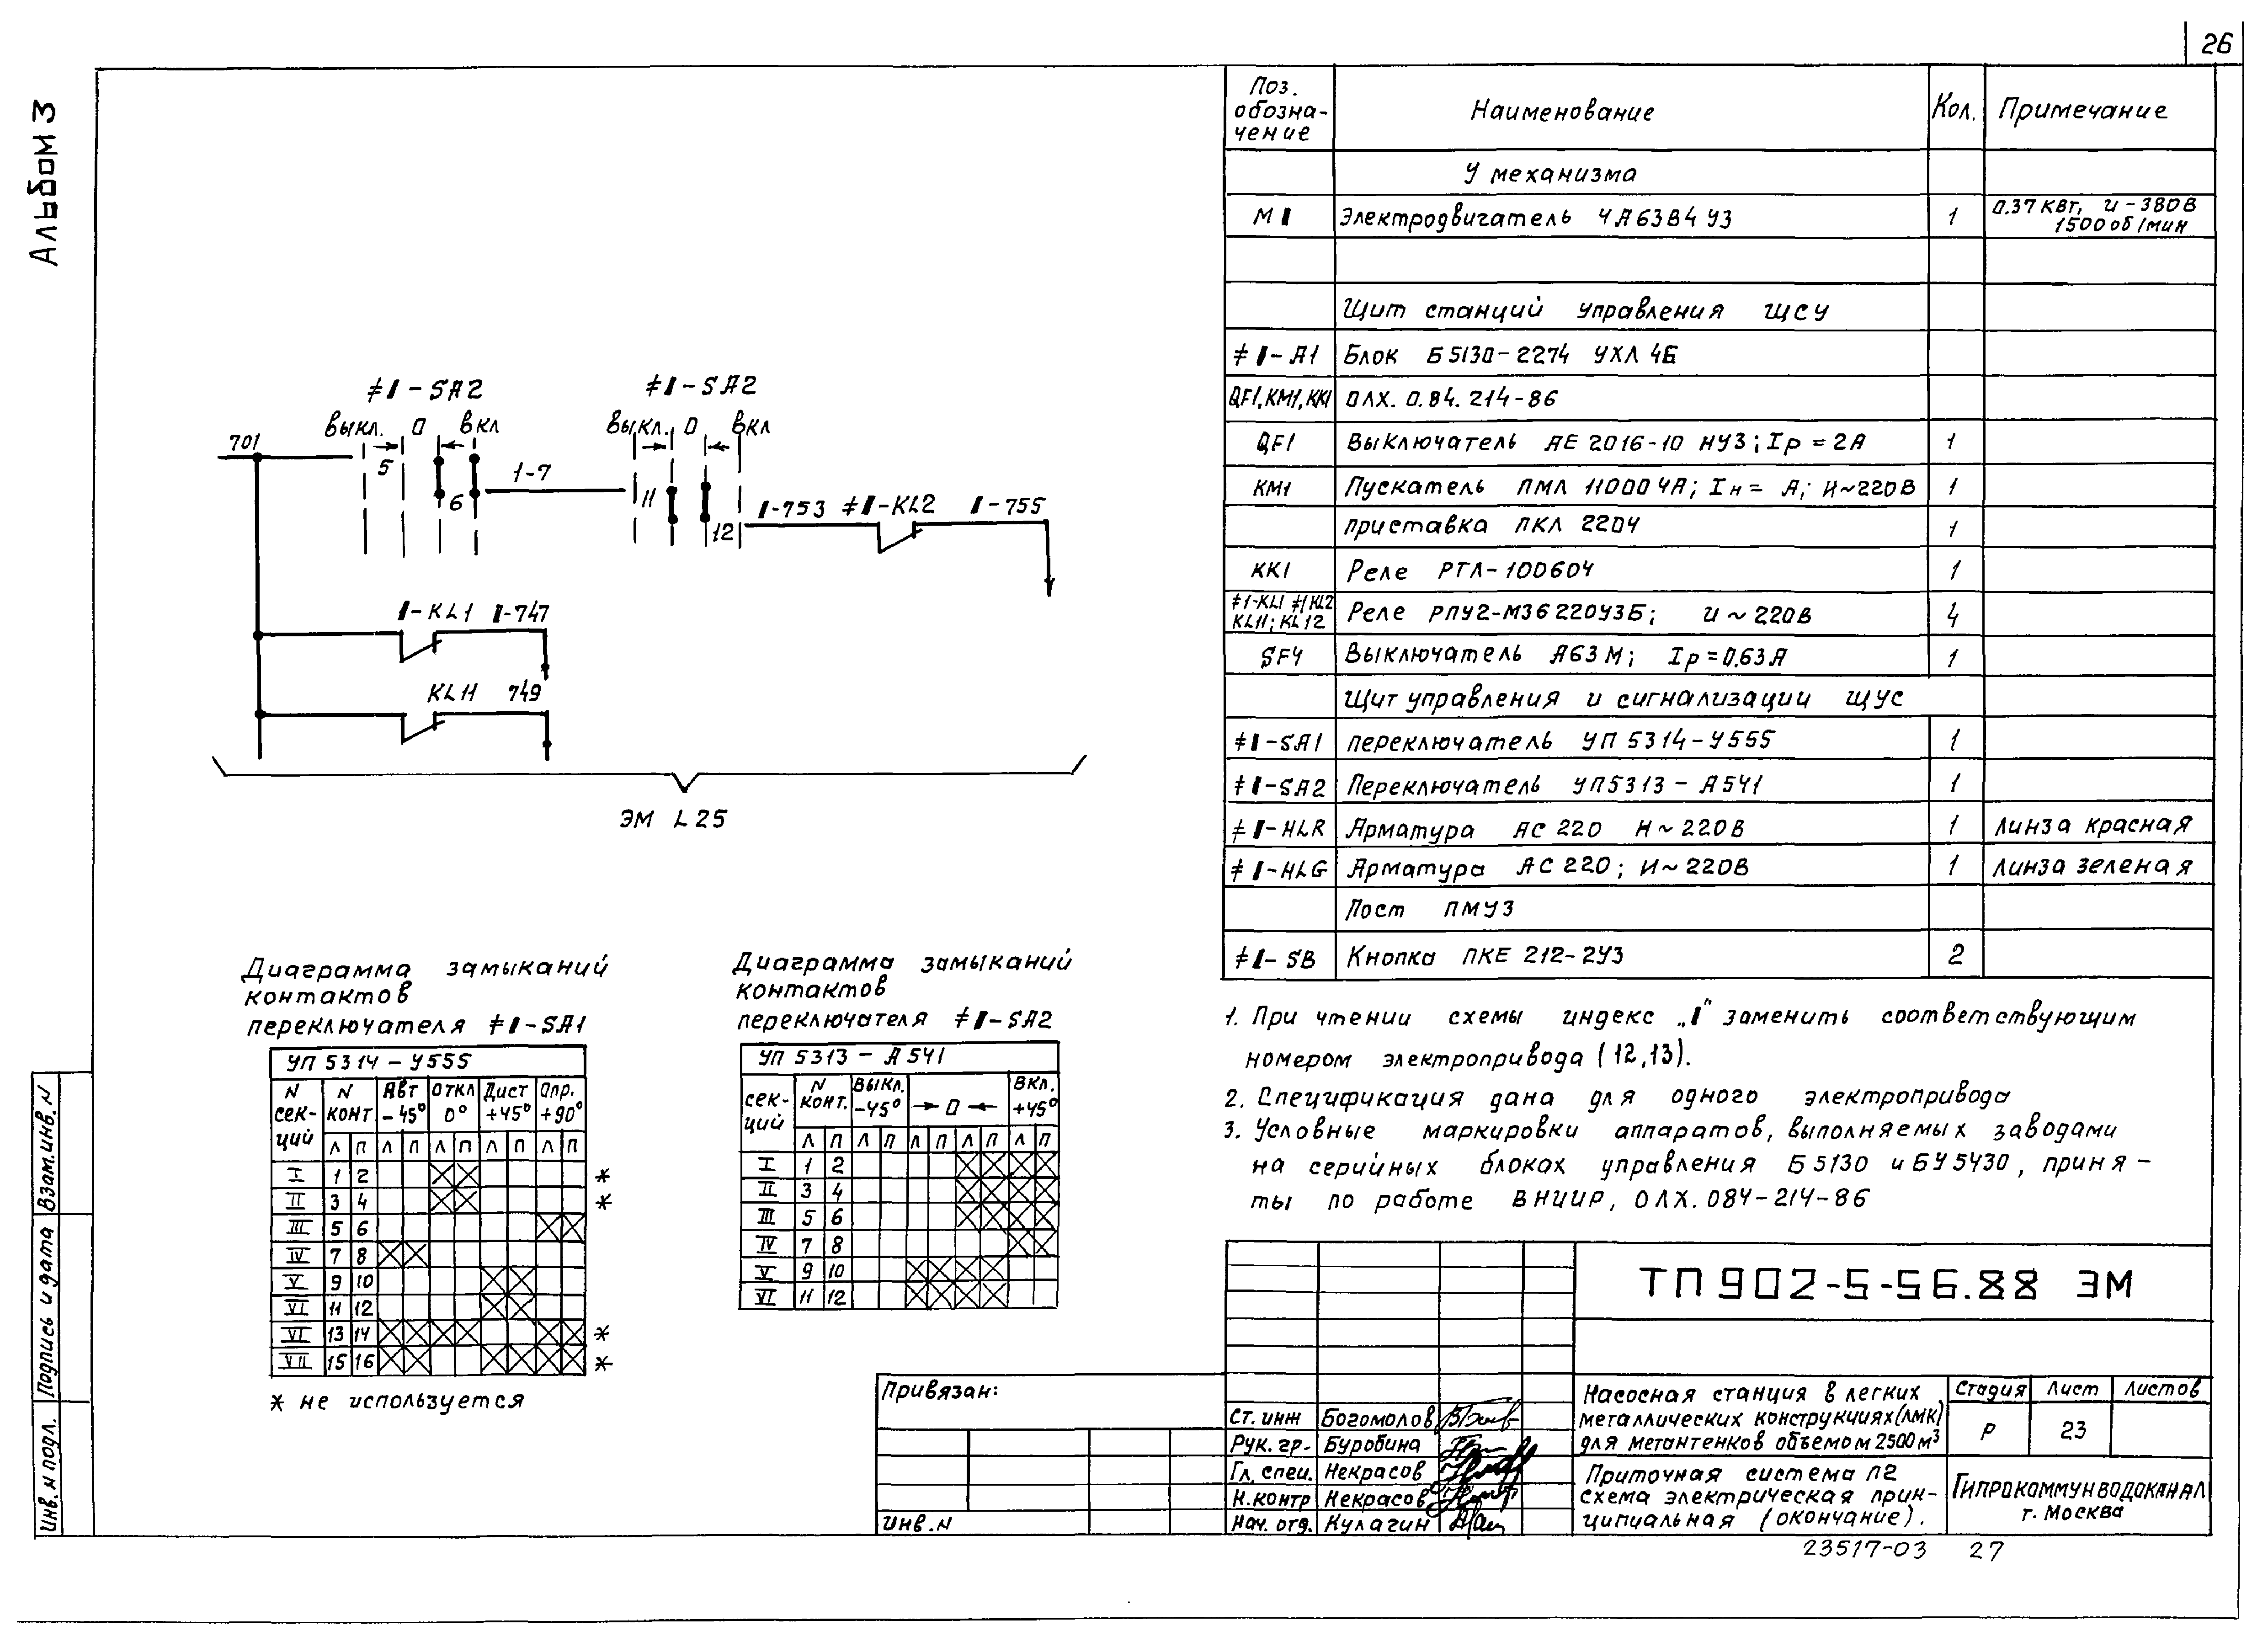 26
Альбом 3
Поз. обозна-чение Наименование Кол. Примечание
У механизма
М I Электродвигатель 4А63В4У3 1 0.37 кВт, U-380В 1500 об/мин
Щит станций управления ЩСУ
≠I-A1 Блок Б5130-2274 УХЛ 4Б
QF1, KM1, KK1 ОЛХ. 0.84. 214-86
QF1 Выключатель АЕ 2016-10 НУ3; Iр = 2А 1
KM1 Пускатель ПМЛ 110004А; Iн = А; U~220В 1
приставка ПКЛ 2204 1
KK1 Реле РТЛ-100604 1
≠I-KL1 ≠I KL2 KL11; KL12 Реле РПУ2-М36220У3Б; U ~ 220В 4
SF4 Выключатель А63М; Iр = 0.63А 1
Щит управления и сигнализации ЩУС
≠I-SA1 переключатель УП 5314-У555 1
≠I-SA2 Переключатель УП5313-А541 1
≠I-HLR Арматура АС 220 U~220В 1 линза красная
≠I-HLG Арматура АС 220; U~220В 1 линза зеленая
Пост ПМУ3
≠I-SB Кнопка ПКЕ 212-2У3 2
≠I-SA2 ≠I-SA2
выкл. 0 вкл вы,кл. 0 вкл
701 5 6 1-7 11 12
I-753 ≠I-KL2 I-755
I-KL1 I-747
KL11 749
ЭМ L25
Диаграмма замыканий
контактов
переключателя ≠I-SA1
УП 5314-У555
N сек-ций N конт Авт -45° Откл 0° Дист +45° Опр. +90°
Л П Л П Л П Л П Л П
I 1 2 *
II 3 4 *
III 5 6
IV 7 8
V 9 10
VI 11 12
VI 13 14 *
VII 15 16 *
* не используется
Диаграмма замыканий
контактов
переключателя ≠I-SA2
УП 5313-А541
сек-ций N конт. Выкл. -45° → 0 ← Вкл. +45°
Л П Л П Л П Л П Л П
I 1 2
II 3 4
III 5 6
IV 7 8
V 9 10
VI 11 12
1. При чтении схемы индекс „I“ заменить соответствующим
номером электропривода (12,13).
2. Спецификация дана для одного электропривода
3. Условные маркировки аппаратов, выполняемых заводами
на серийных блоках управления Б5130 и БУ5430, приня-
ты по работе ВНИИР, ОЛХ.084-214-86
Взам.инв.N
Подпись и дата
Инв. N подл.
Привязан:
Инв.N
Ст. инж Богомолов
Рук. гр. Буробина
Гл. спец. Некрасов
Н.контр Некрасов
Нач. отд. Кулагин
ТП 902-5-56.88 ЭМ
Насосная станция в легких
металлических конструкциях (ЛМК)
для метантенков объемом 2500 м³
Стадия Лист Листов
Р 23
Приточная система П2
схема электрическая прин-
ципиальная (окончание).
Гипрокоммунводоканал
г. Москва
23517-03 27